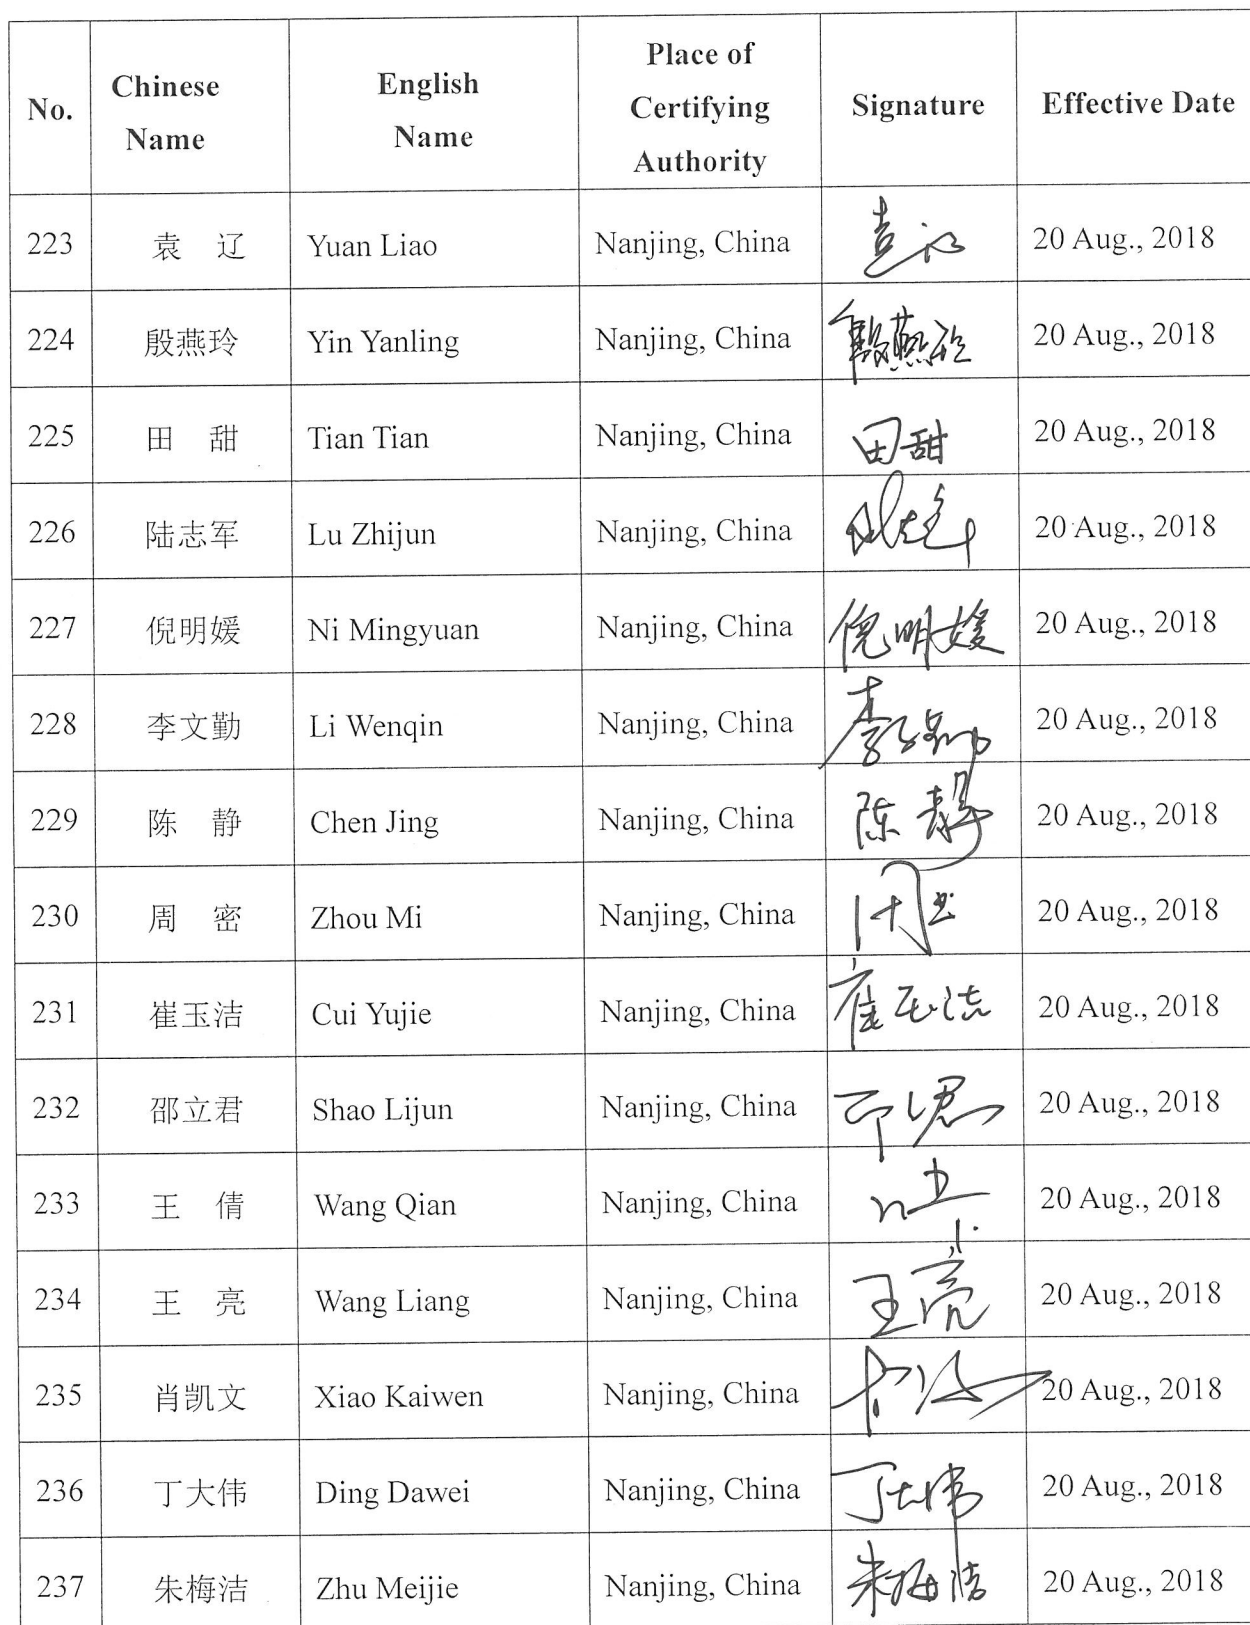 No. Chinese Name English Name Place of Certifying Authority Signature Effective Date
223 袁 辽 Yuan Liao Nanjing, China 袁辽 20 Aug., 2018
224 殷燕玲 Yin Yanling Nanjing, China 殷燕玲 20 Aug., 2018
225 田 甜 Tian Tian Nanjing, China 田甜 20 Aug., 2018
226 陆志军 Lu Zhijun Nanjing, China 20 Aug., 2018
227 倪明媛 Ni Mingyuan Nanjing, China 倪明媛 20 Aug., 2018
228 李文勤 Li Wenqin Nanjing, China 李文勤 20 Aug., 2018
229 陈 静 Chen Jing Nanjing, China 陈静 20 Aug., 2018
230 周 密 Zhou Mi Nanjing, China 20 Aug., 2018
231 崔玉洁 Cui Yujie Nanjing, China 崔玉洁 20 Aug., 2018
232 邵立君 Shao Lijun Nanjing, China 20 Aug., 2018
233 王 倩 Wang Qian Nanjing, China 20 Aug., 2018
234 王 亮 Wang Liang Nanjing, China 王亮 20 Aug., 2018
235 肖凯文 Xiao Kaiwen Nanjing, China 20 Aug., 2018
236 丁大伟 Ding Dawei Nanjing, China 丁大伟 20 Aug., 2018
237 朱梅洁 Zhu Meijie Nanjing, China 朱梅洁 20 Aug., 2018